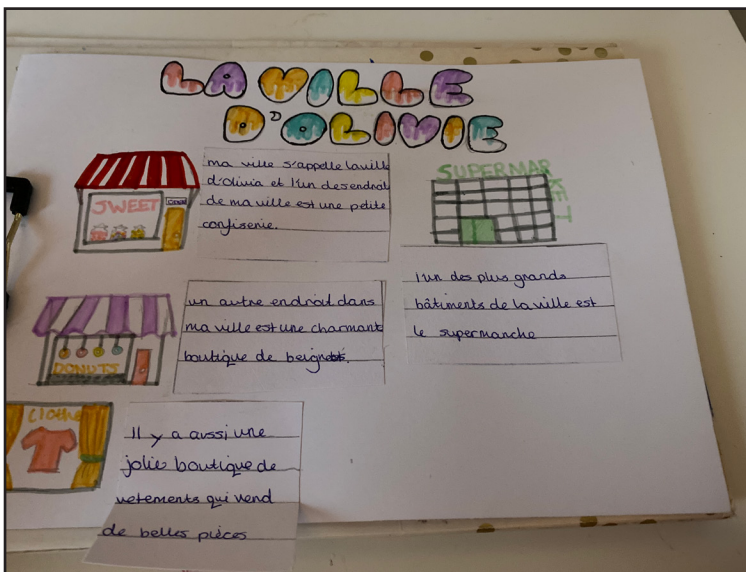 LA VILLE
D'OLIVIE
SWEET
OPEN
ma ville s'appelle la ville
d'olivia et l'un des endroit
de ma ville est une petite
confiserie.
SUPERMARKET
l'un des plus grands
bâtiments de la ville est
le supermanche
DONUTS
un autre endroit dans
ma ville est une charmante
boutique de beignets.
Clothe
Il y a aussi une
jolie boutique de
vetements qui vend
de belles pièces